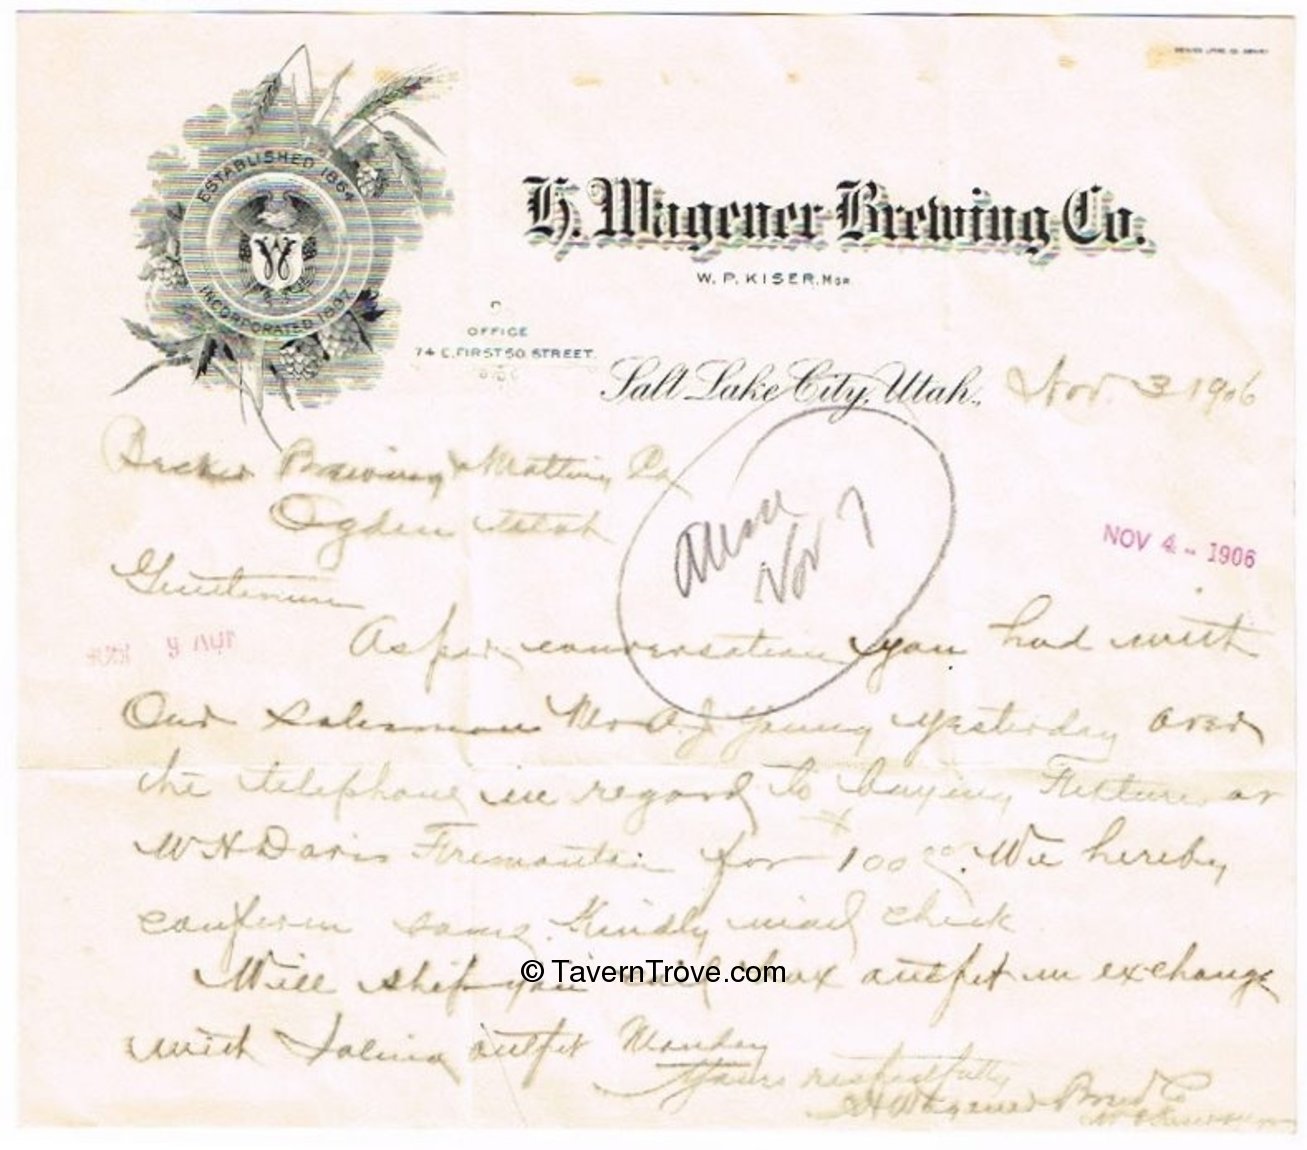 ESTABLISHED 1864
W
INCORPORATED
H. Wagener Brewing Co.
W. P. KISER, MGR.
OFFICE
74 E. FIRST SO. STREET.
Salt Lake City, Utah., Nov. 3 1906
Becker Brewing & Malting Co
Ogden Utah
NOV 4 - 1906
Nov 7
Gentlemen
As per conversation you had with
Our salesman Mr A. J. Young yesterday over
the telephone in regard to buying Fixtures or
W H Davis Fremont for 100 00. We hereby
confirm same. Kindly mail check
Will ship you box outfit in exchange
© TavernTrove.com
with Salina outfit Monday
Yours respectfully
H Wagener Brew Co